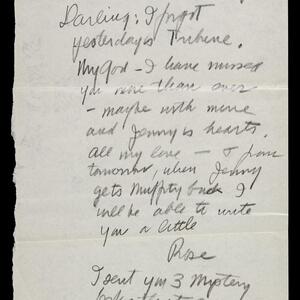 Darling: I forgot
yesterday's Tribune.
My God - I have missed
you more than ever
- maybe with mine
and Jenny's hearts.
all my love - & from
tomorrow, when Jenny
gets back I
will be able to write
you a little
Rose
I sent you 3 mystery